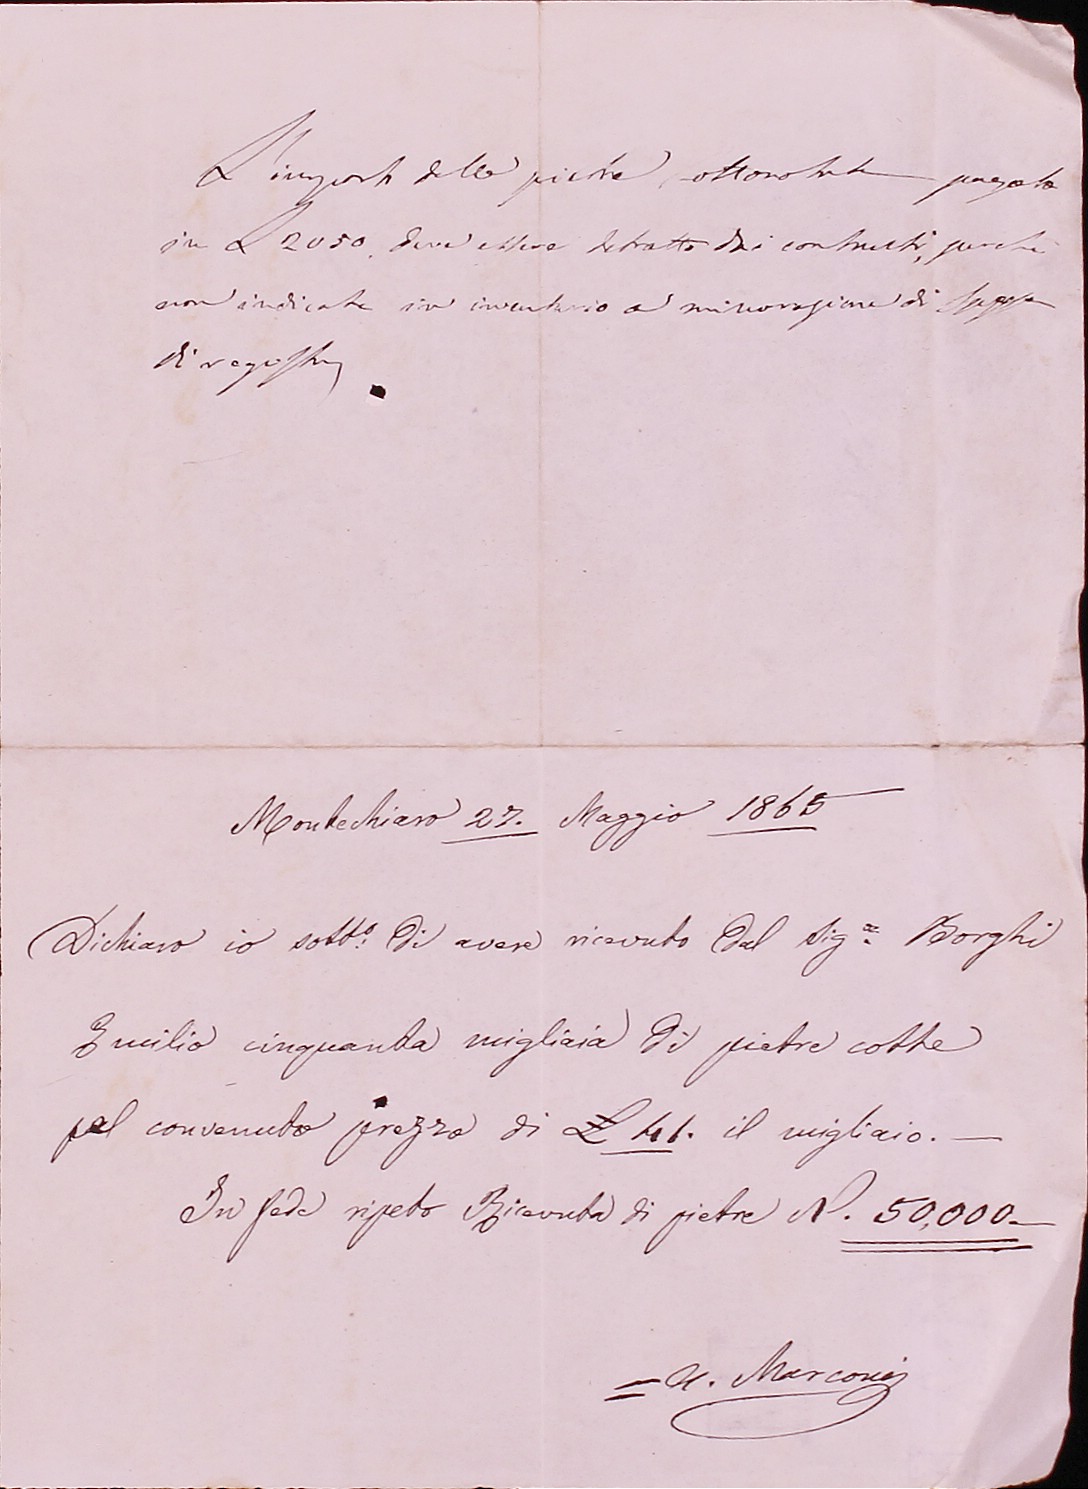 L'importo delle pietre sottonotate pagate
in L 2050. deve essere detratto dai contratti, perchè
non indicate in inventario a minorazione di spesa
di registro
Montechiaro 27. Maggio 1865
Dichiaro io sotto: di avere ricevuto dal Sig.r Borghi
Emilio cinquanta migliaia di pietre cotte
pel convenuto prezzo di £ 41. il migliaio. —
In fede ripeto Ricevuta di pietre N. 50,000 —
= A. Marconi